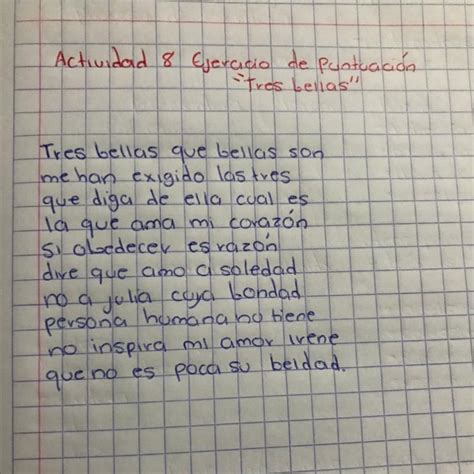 Actividad 8 Ejercicio de Puntuación
"Tres bellas"
Tres bellas que bellas son
me han exigido las tres
que diga de ella cual es
la que ama mi corazón
si obedecer es razón
dire que amo a soledad
no a julia cuya bondad
persona humana no tiene
no inspira mi amor irene
que no es poca su beldad.